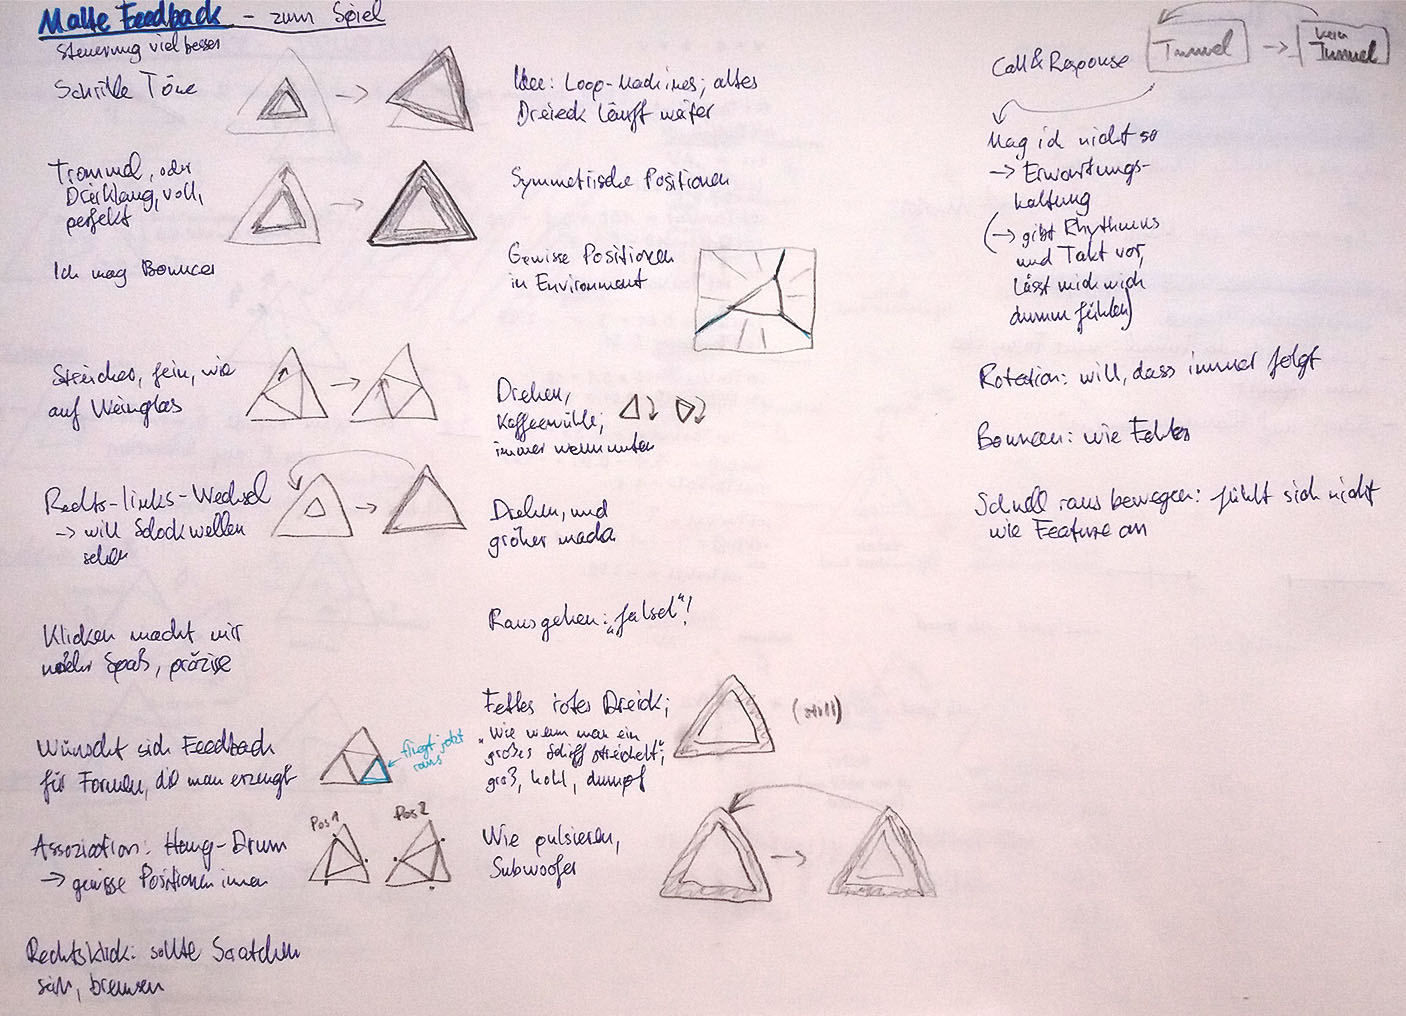 Malte Feedback – zum Spiel
Steuerung viel besser
Schrille Töne
Trommel, oder
Dreiklang, voll,
perfekt
Ich mag Bouncer
Streicher, fein, wie
auf Weinglas
Rechts-links-Wechsel
→ will Schockwellen
sehen
Klicken macht mir
mehr Spaß, präzise
Wünscht sich Feedback
für Formen, die man erzeugt
fliegt jetzt
raus
Assoziation: Hang-Drum
→ gewisse Positionen innen
Pos 1
Pos 2
Rechtsklick: sollte Scratchen
sein, bremsen
Idee: Loop-Machines; altes
Dreieck läuft weiter
Symmetrische Positionen
Gewisse Positionen
in Environment
Drehen,
Kaffeemühle,
immer wenn unten
Drehen, und
größer machen
Rausgehen: „falsch“!
Fettes rotes Dreieck;
"Wie wenn man ein
großes Schiff streichelt";
groß, hohl, dumpf
(still)
Wie pulsieren,
Subwoofer
Call & Response
Tunnel
→
kein
Tunnel
Mag ich nicht so
→ Erwartungs-
haltung
(→ gibt Rhythmus
und Takt vor,
lässt mich mich
dumm fühlen)
Rotation: will, dass immer folgt
Bouncen: wie Fehler
Schnell raus bewegen: fühlt sich nicht
wie Feature an